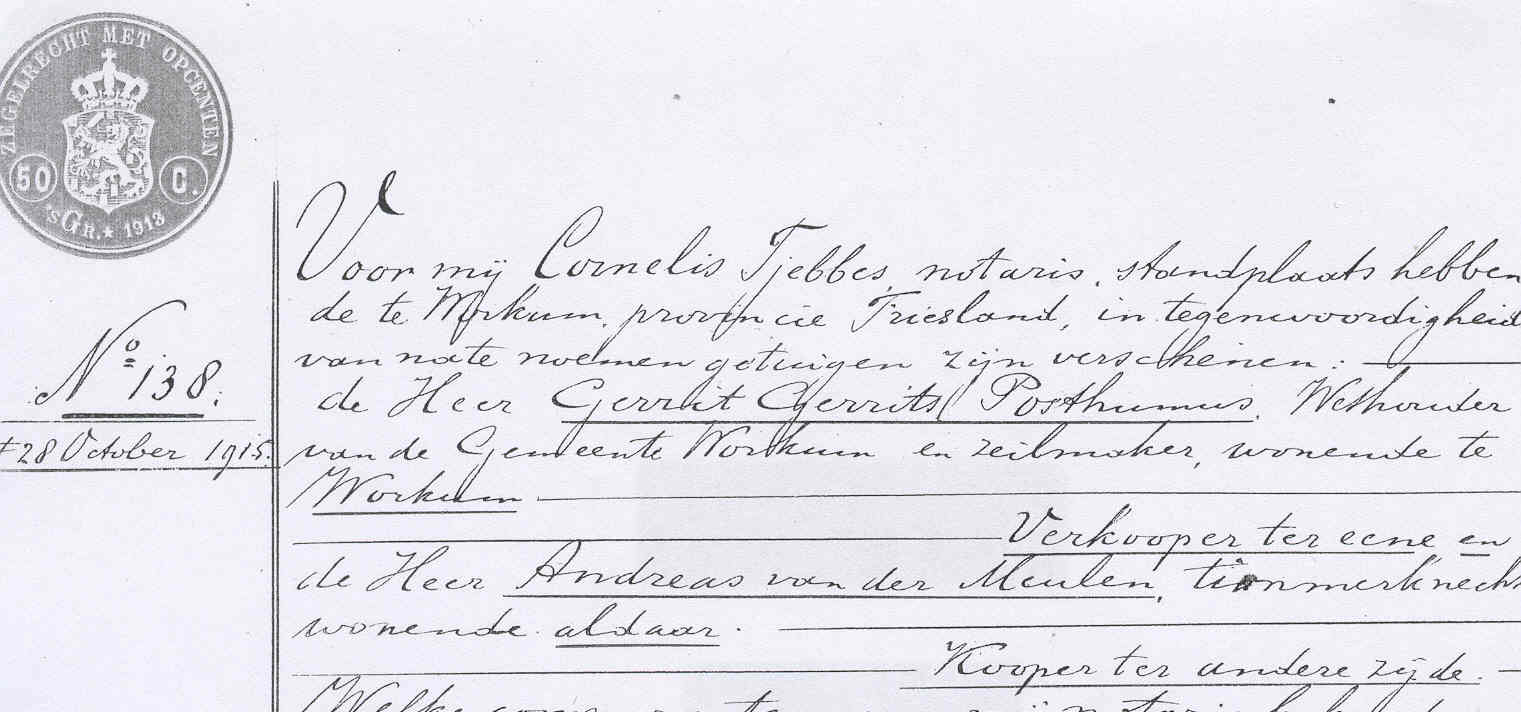 ZEGELRECHT MET OPCENTEN
50 C.
'sGR.★ 1913
Nº 138.
28 October 1915.
Voor mij Cornelis Tjebbes, notaris, standplaats hebben
de te Workum, provincie Friesland, in tegenwoordigheid
van na te noemen getuigen zijn verschenen:
de Heer Gerrit Gerrits Posthumus, Wethouder
van de Gemeente Workum en zeilmaker, wonende te
Workum
Verkooper ter eene en
de Heer Andreas van der Meulen, timmerknecht
wonende aldaar.
Kooper ter andere zijde.
Welke